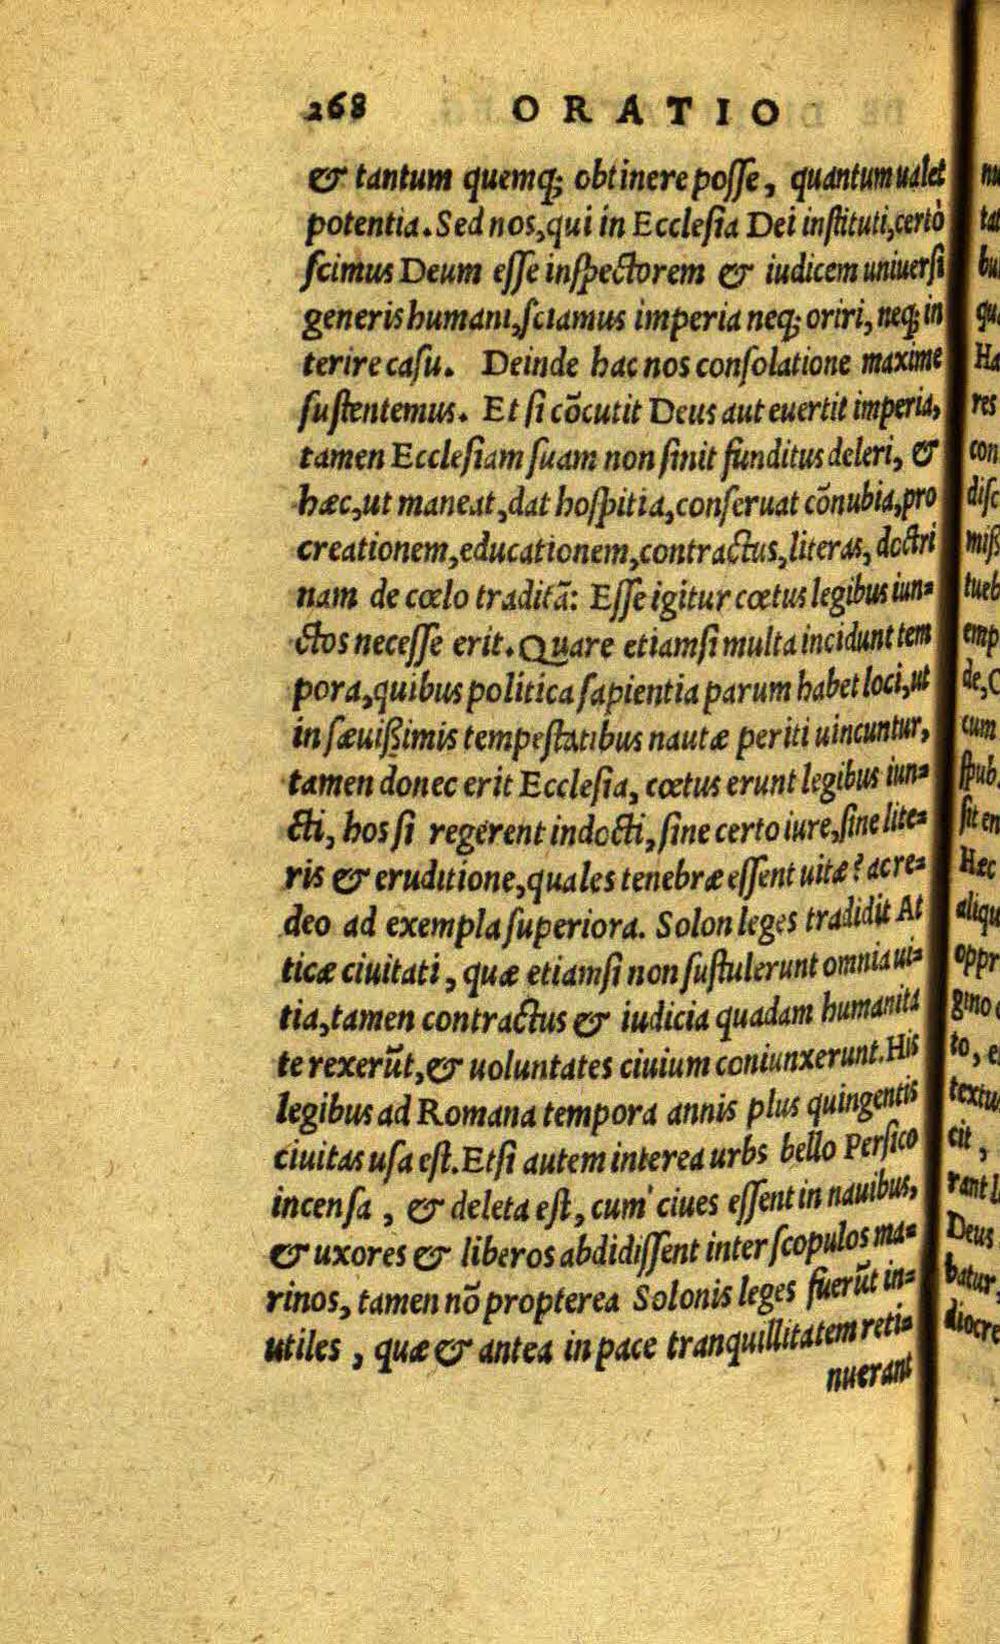 268 ORATIO
& tantum quemq; obtinere posse, quantum ualet
potentia. Sed nos, qui in Ecclesia Dei instituti, certò
scimus Deum esse inspectorem & iudicem uniuersi
generis humani, sciamus imperia neq; oriri, neq; in
terire casu. Deinde hac nos consolatione maxime
sustentemus. Et si cõcutit Deus aut euertit imperia,
tamen Ecclesiam suam non sinit funditus deleri, &
hæc, ut maneat, dat hospitia, conseruat cõnubia, pro
creationem, educationem, contractus, literas, doctri
nam de cœlo traditã: Esse igitur cœtus legibus iun=
ctos necesse erit. Quare etiamsi multa incidunt tem
pora, quibus politica sapientia parum habet loci, ut
in sæuißimis tempestatibus nautæ periti uincuntur,
tamen donec erit Ecclesia, cœtus erunt legibus iun=
cti, hos si regerent indocti, sine certo iure, sine lite=
ris & eruditione, quales tenebræ essent uitæ? ac re=
deo ad exempla superiora. Solon leges tradidit At
ticæ ciuitati, quæ etiamsi non sustulerunt omnia ui=
tia, tamen contractus & iudicia quadam humanita
te rexerũt, & uoluntates ciuium coniunxerunt. His
legibus ad Romana tempora annis plus quingentis
ciuitas usa est. Etsi autem interea urbs bello Persico
incensa, & deleta est, cum ciues essent in nauibus,
& uxores & liberos abdidissent inter scopulos ma=
rinos, tamen nõ propterea Solonis leges fuerũt in=
utiles, quæ & antea in pace tranquillitatem reti=
nuerant